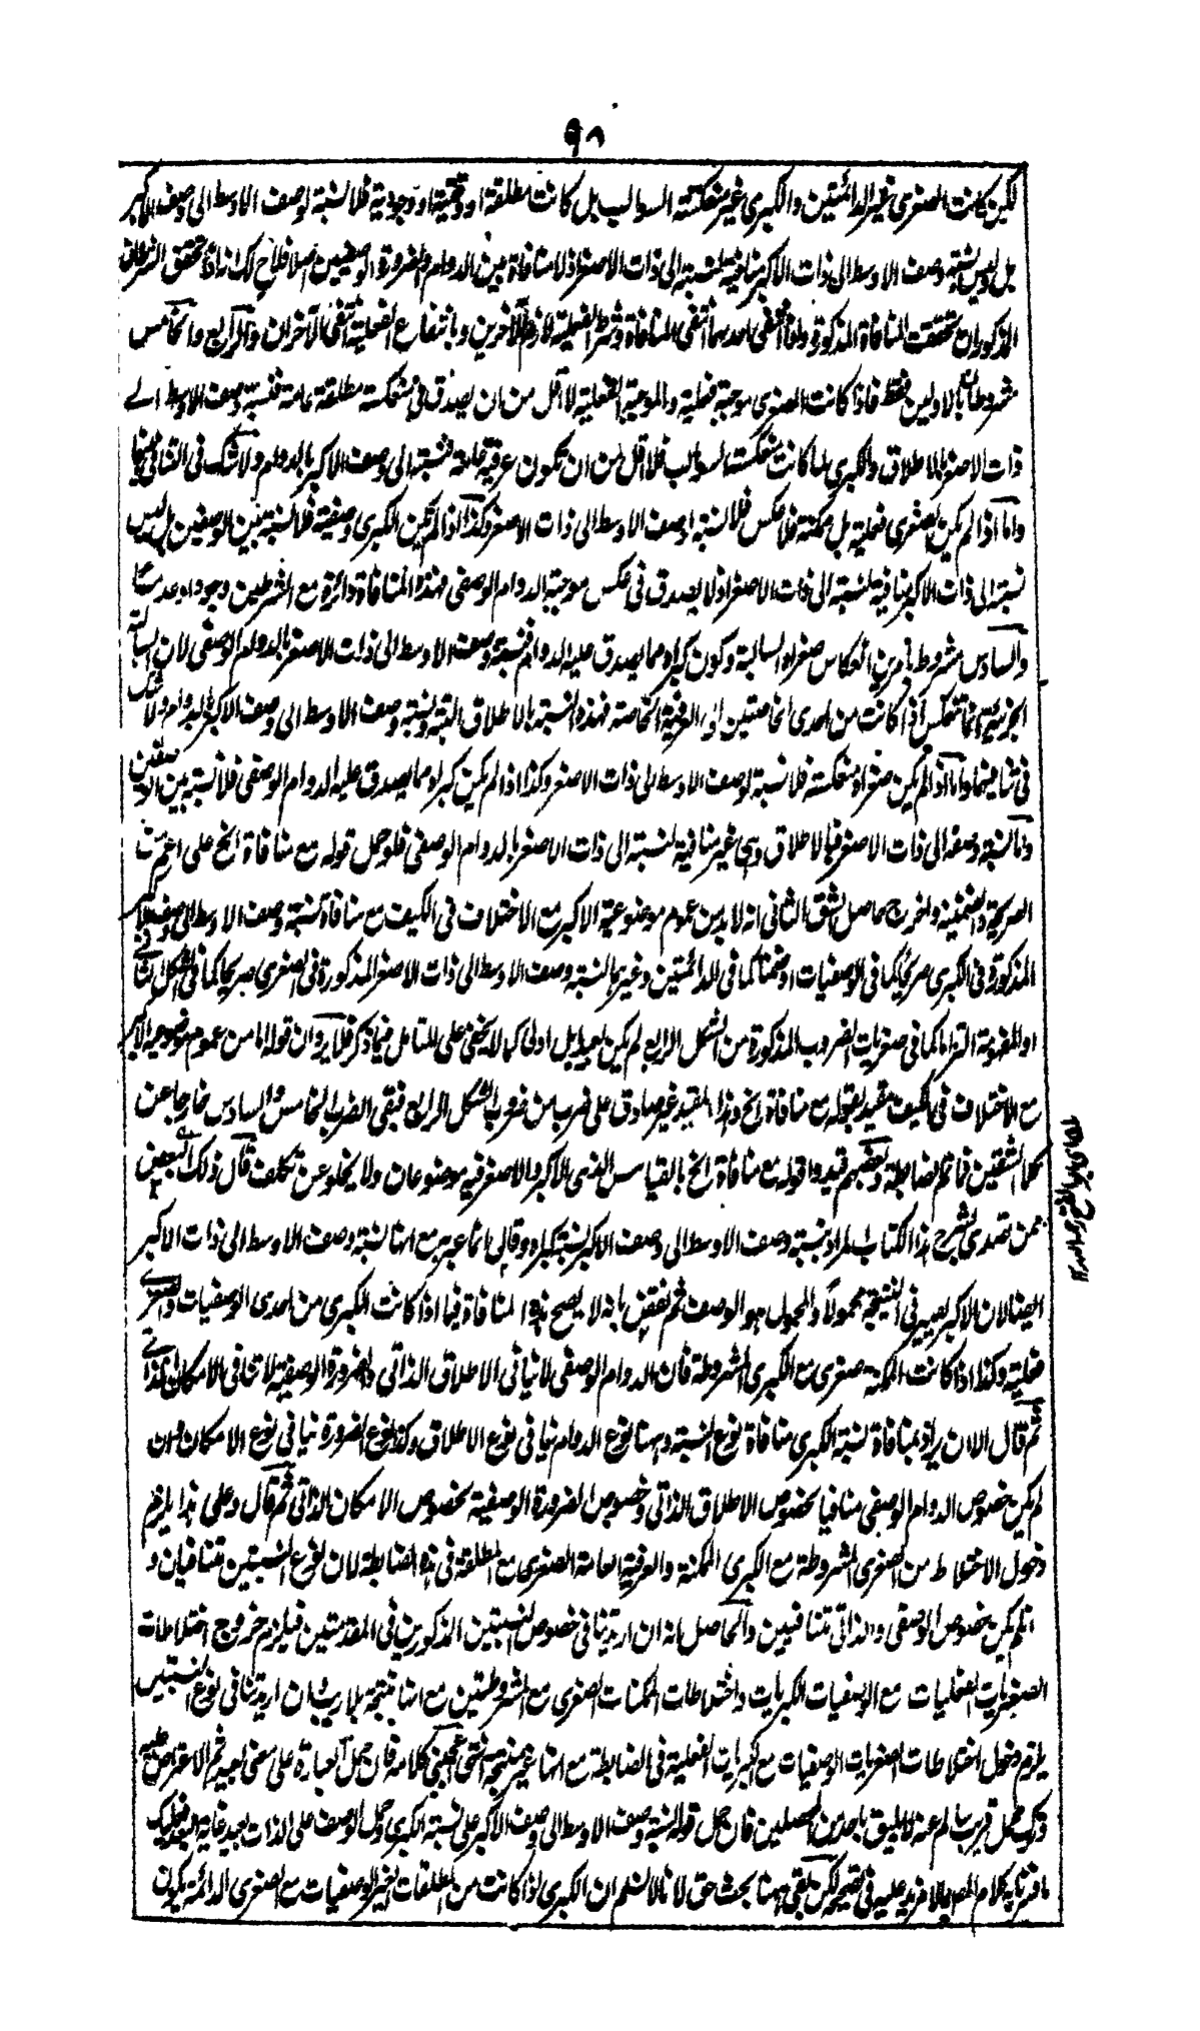 ٩٨
لم يكن كانت الصغرى غير الدائمتين والكبرى غير منعكسة السوالب بل كانت مطلقة او وقتية او وجودية فلا نسبة لوصف الاوسط الى وصف الاكبر
بل ليس نسبة وصف الاوسط الى ذات الاكبر منافية لنسبته الى ذات الاصغر اذ لا منافاة بين الدوام والضرورة الوصفيين اصلا فلاح لك انه اذا تحقق الشرطان
المذكوران تحققت المنافاة المذكورة واذا انتفى احدهما انتفى المنافاة وشرط الفعلية لازم للآخرين وبانتفاء الفعلية انتفى الآخران والرابع والخامس
مشروطان بالاولين فقط فاذا كانت الصغرى موجبة فعلية والموجبة الفعلية لا اقل من ان يصدق فى منعكسة مطلقة عامة فنسبة وصف الاوسط الى
ذات الاصغر بالاطلاق والكبرى لما كانت منعكسة السوالب فلا اقل من ان تكون عرفية عامة فنسبته الى وصف الاكبر بالدوام ولا شك فى التنافى بينهما
واما اذا لم يكن الصغرى فعلية بل ممكنة فلا عكس فلا نسبة لوصف الاوسط الى ذات الاصغر وكذا اذا لم تكن الكبرى وصفية فلا نسبة بين الوصفين بل ليس
نسبته الى ذات الاكبر منافية لنسبته الى ذات الاصغر اذ لا يصدق فى عكس موجبة الدوام الوصفى فهذه المنافاة دائرة مع الشرطين وجودا وعدما
والسادس مشروط بامرين انعكاس صغراه السالبة وكون كبراه مما يصدق عليه الدوام فنسبة وصف الاوسط الى ذات الاصغر بالدوام الوصفى لان السالبة
الجزئية انما تنعكس اذا كانت من احدى الخاصتين اى العرفية الخاصة فهذه النسبة بالاطلاق البتة ونسبة وصف الاوسط الى وصف الاكبر بالدوام ولا شك
فى تنافيهما واما اذا لم يكن صغراه منعكسة فلا نسبة لوصف الاوسط الى ذات الاصغر وكذا اذا لم يكن كبراه مما يصدق عليه الدوام الوصفى فلا نسبة بين الوصفين
واما نسبة وصفه الى ذات الاصغر فبالاطلاق وهى غير منافية لنسبته الى ذات الاصغر بالدوام الوصفى فلو حمل قوله مع منافاة الخ على اعم من
الصريحة والضمنية واخرج حاصل الشق الثانى انه لا بد من عموم موضوعية الاكبر مع الاختلاف فى الكيف مع منافاة نسبة وصف الاوسط الى وصف الاكبر
المذكورة فى الكبرى صريحا كما فى الوصفيات او ضمنا كما فى الدائمتين وغيرهما لنسبة وصف الاوسط الى ذات الاصغر المذكورة فى الصغرى صريحا كما فى الشكل الثانى
او المفهومة التزاما كما فى صغريات الضروب المذكورة من الشكل الرابع لم يكن بعيدا بل اولى كما لا يخفى على المتامل فيما ذكر فلا يرد ان قوله اما من عموم موضوعية الاكبر
مع الاختلاف فى الكيف مقيد بقوله مع منافاة الخ وهذا المقيد غير صادق على ضرب من ضروب الشكل الرابع فبقى الضرب الخامس والسادس خارجا عن
كلا الشقين فما تم الضابطة وبعضهم قيدوا قوله مع منافاة الخ بالقياس الذى الاكبر والاصغر فيه موضوعان ولا يخلو عن تكلف قال ذلك البعض
ممن تصدى لشرح هذا الكتاب المراد بنسبة وصف الاوسط الى وصف الاكبر نسبة كبراه وقال انما عبر مع انها نسبة وصف الاوسط الى ذات الاكبر
ايضا لان الاكبر يصير فى النتيجة محمولا والمحمول هو الوصف ثم نقض بانه لا يصح هذه المنافاة فيما اذا كانت الكبرى من احدى الوصفيات والصغرى
فعلية وكذا اذا كانت الممكنة صغرى مع الكبرى المشروطة فان الدوام الوصفى لا ينافى الاطلاق الذاتى والضرورة الوصفية لا تنافى الامكان الذاتى
ثم قال الا ان يراد بمنافاة نسبة الكبرى منافاة نوع النسبة وههنا نوع الدوام ينافى نوع الاطلاق وكذا نوع الضرورة ينافى نوع الامكان وان
لم يكن خصوص الدوام الوصفى منافيا لخصوص الاطلاق الذاتى وخصوص الضرورة الوصفية لخصوص الامكان الذاتى ثم قال وعلى هذا يلزم
دخول الاختلاط من الصغرى المشروطة مع الكبرى الممكنة والعرفية العامة الصغرى مع المطلقة فى هذه الضابطة لان نوع النسبتين متنافيان و
ان لم يكن خصوص الوصفى والذاتى متنافيين والحاصل انه ان اريد تنافى خصوص النسبتين المذكورين فى المقدمتين فيلزم خروج اختلاطات
الصغريات الفعليات مع الوصفيات الكبريات واختلاطات الممكنات الصغرى مع المشروطتين مع انها منتجة بلا ريب وان اريد تنافى نوع النسبتين
يلزم دخول اختلاطات الصغريات الوصفيات مع الكبريات الفعلية فى الضابطة مع انها غير منتجة انتهى كلامه فان حمل العبارة على معنى بعيد ثم الاعتراض عليه
وترك محمل قريب سالم عنه لا يليق باحد من المحصلين فان حمل قوله نسبة وصف الاوسط الى وصف الاكبر على نسبة الكبرى وحمل الوصف على الذات بعيد غاية البعد
ما قررنا به كلام المصنف لا مزيد عليه فى تصحيحه لكن بقى ههنا بحث حق لانا لا نسلم ان الكبرى اذا كانت من المطلقات الغير الوصفيات مع الصغرى الدائمة يكون